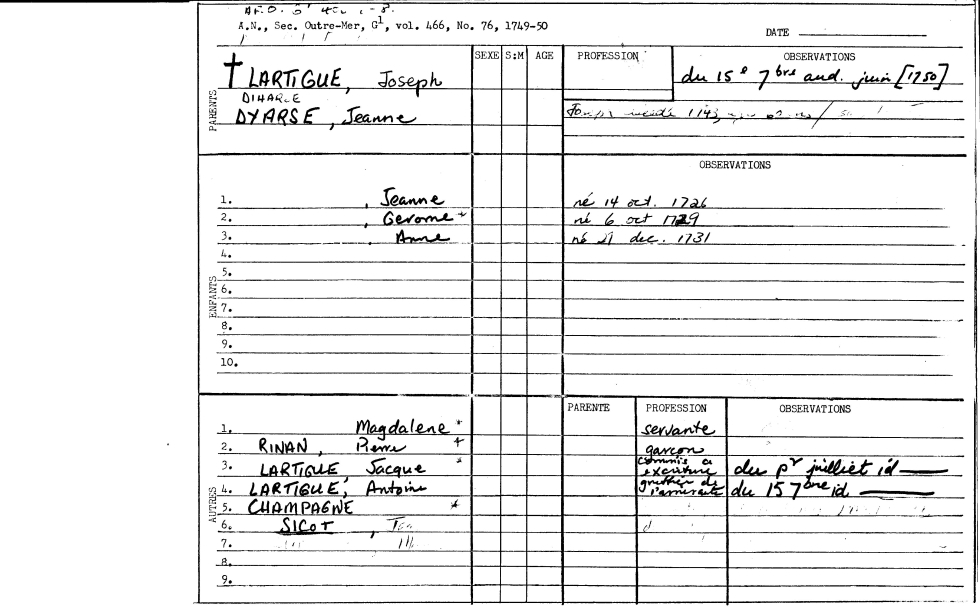 A.N., Sec. Outre-Mer, G1, vol. 466, No. 76, 1749-50
DATE
SEXE S:M AGE PROFESSION OBSERVATIONS
† LARTIGUE, Joseph du 15e 7bre aud. juin [1750]
DIHARCE
DYARSE, Jeanne
PARENTS
OBSERVATIONS
1. , Jeanne né 14 oct. 1726
2. , Gerome + né 6 oct 1729
3. , Anne né dec. 1731
4.
5.
6.
7.
8.
9.
10.
ENFANTS
PARENTE PROFESSION OBSERVATIONS
1. Magdalene * servante
2. RINAN, Pierre + garcon
3. LARTIGUE, Jacque * commis a exciture du pr juilliet id
4. LARTIGUE, Antoine greffier de l'amiraute du 15 7bre id
5. CHAMPAGNE *
6. SICOT,
7.
8.
9.
AUTRES